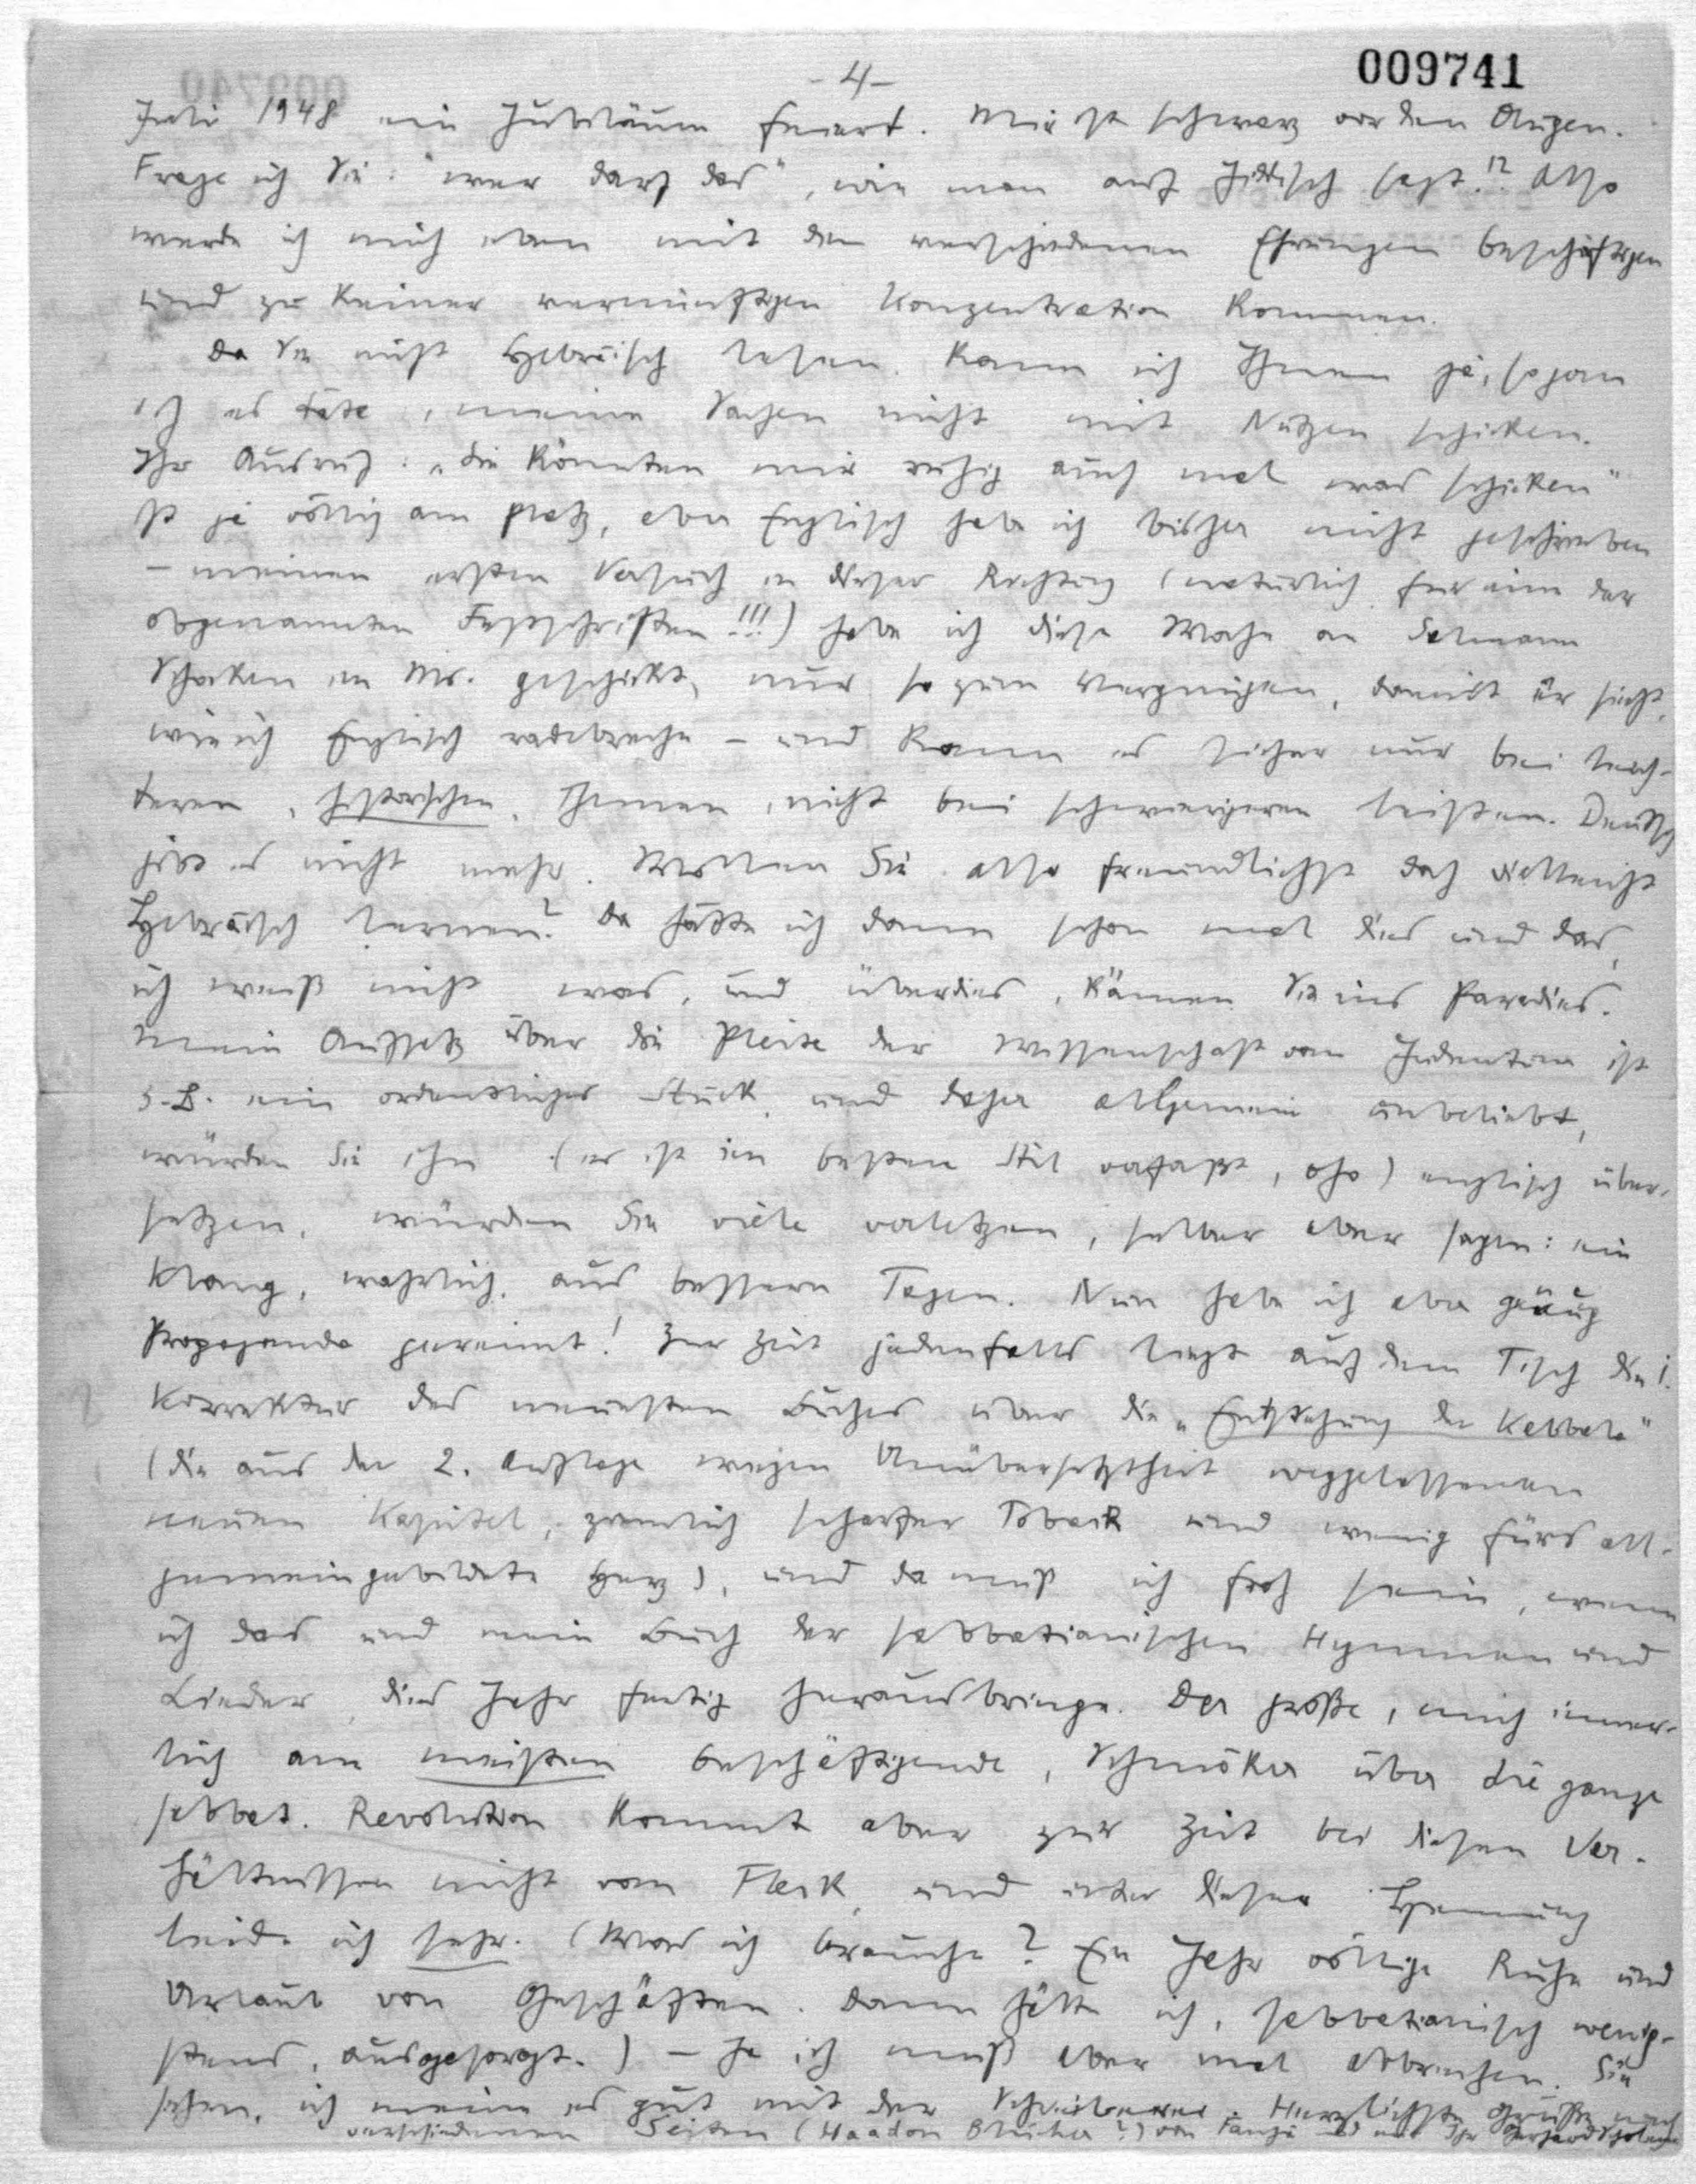 009741
- 4 -
Juli 1948 ein Jubiläum feiert. Mir ist schwarz vor den Augen.
Frage ich Sie: "wer darf das", wie man auf Jiddisch sagt!? Also
werde ich mich eben mit den verschiedenen Ehrungen beschäftigen
und zu keiner vernünftigen Konzentration kommen.
Da Sie nicht Hebräisch lesen, kann ich Ihnen ja, sogar
ich es täte, meine Sachen nicht mit Nutzen schicken.
Ihr Ausruf: „Sie könnten mir ruhig auch mal was schicken"
ist ja völlig am Platz, aber Englisch habe ich bisher nicht geschrieben
– meinen ersten Versuch in dieser Richtung (natürlich für eine der
obgenannten Festschriften!!!) habe ich diese Woche an Salmann
Schocken im Ms. geschickt, nur so zum Vergnügen, damit er sieht,
wie ich Englisch radebreche – und kann es sicher nur bei leich-
teren, historischen, Themen, nicht bei schwierigeren leisten. Deutsch
gibt es nicht mehr. Wollen Sie also freundlichst doch vielleicht
Hebräisch lernen? Da hätte ich dann schon mal dies und das,
ich weiß nicht was, und überdies, kämen Sie ins Paradies.
Mein Aufsatz über die Pleite der Wissenschaft vom Judentum ist
z.B. ein ordentliches Stück, und daher allgemein unbeliebt,
würden Sie ihn (er ist im besten Stil verfaßt, oho) englisch über-
setzen, würden Sie viele verletzen, selber aber sagen: ein
Klang, wahrlich, aus bessern Tagen. Nun habe ich aber genug
Propaganda gereimt! Zur Zeit jedenfalls liegt auf dem Tisch die 1.
Korrektur des neuesten Buches über die „Entstehung der Kabbala"
(die aus der 2. Auflage wegen Unübersetztheit weggelassenen
neuen Kapitel, ziemlich scharfer Toback und wenig fürs all-
gemeingebildete Herz), und da muß ich froh sein, wenn
ich das und mein Buch der sabbatianischen Hymnen und
Lieder dies Jahr fertig herausbringe. Der große, mich inner-
lich am meisten beschäftigende, Schmöker über die ganze
sabbat. Revolution kommt aber zur Zeit bei diesen Ver-
hältnissen nicht vom Fleck, und unter dieser Hemmung
leide ich sehr. (Was ich brauche? Ein Jahr völlige Ruhe und
Urlaub von Geschäften. Dann hätte ich, sabbatianisch wenig-
stens, ausgesorgt.) – Ja ich muß aber mal abbrechen. Sie
sehen, ich meine es gut mit der Schreiberei. Herzlichste Grüße nach
verschiedenen Seiten (Haadon Blücher?) von Fanja und mir Ihr Gerhard Scholem